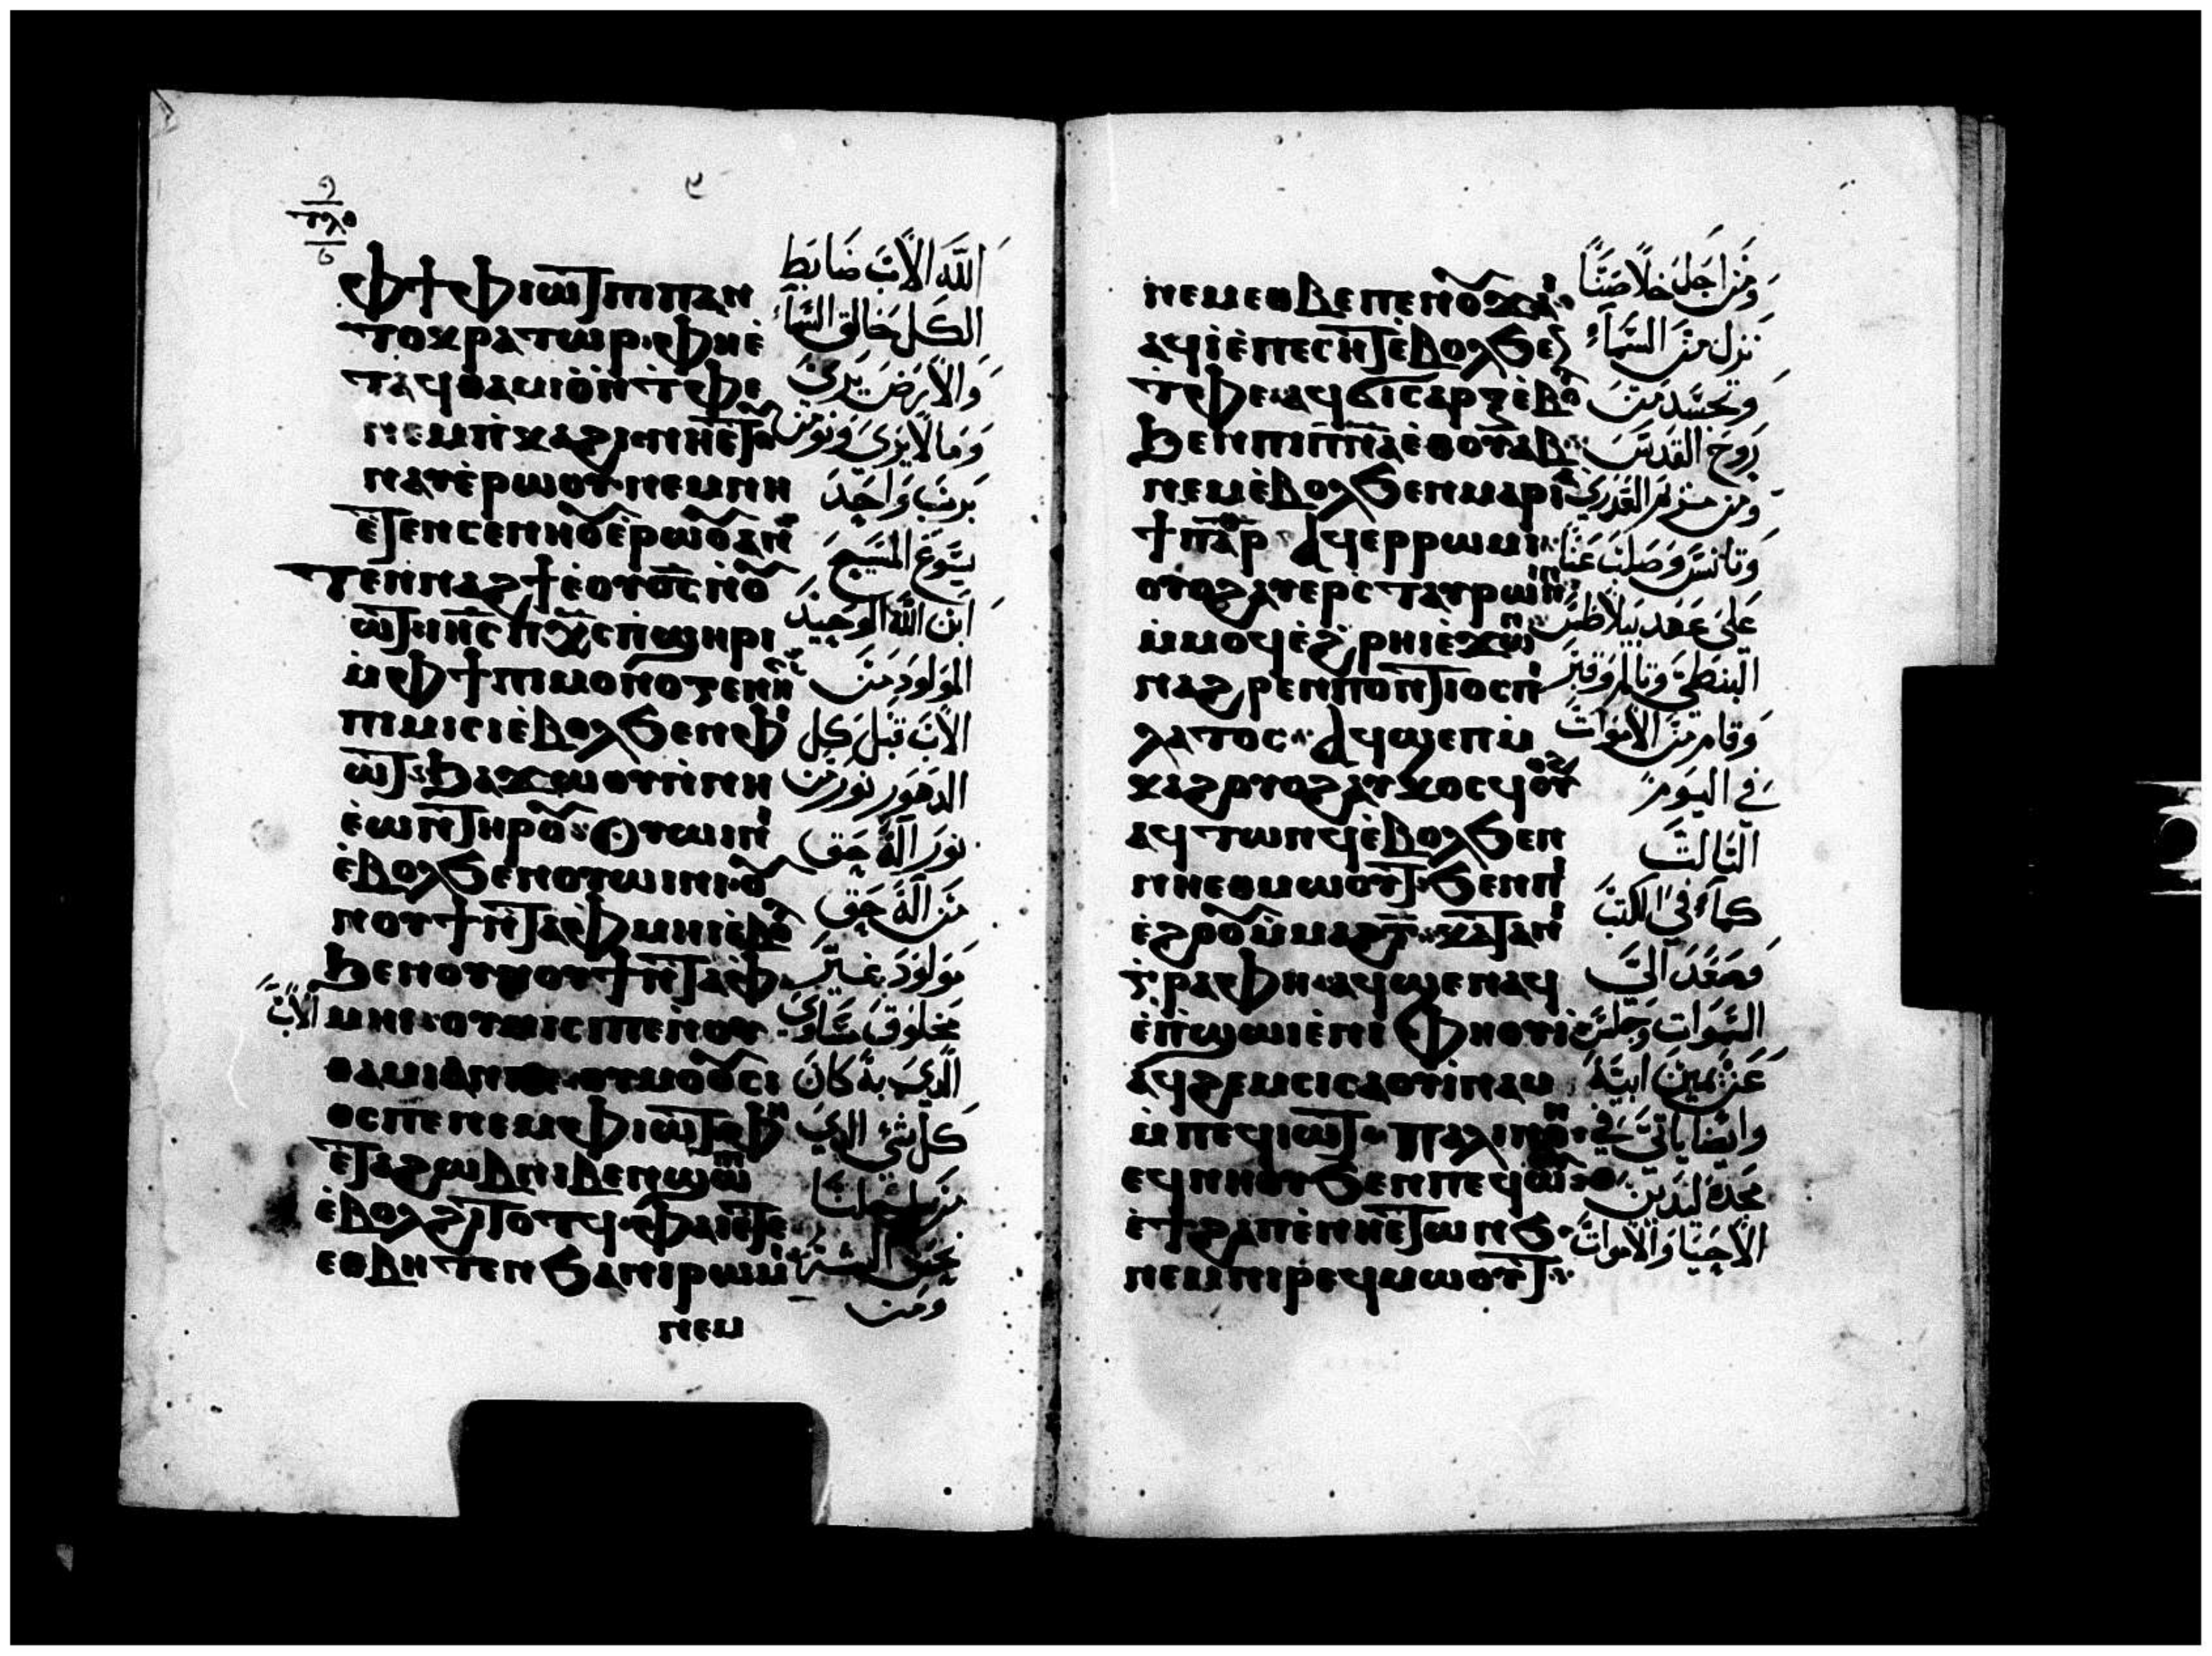 ⲫϯ ⲫⲓⲱⲧ ⲡⲓⲡⲁⲛ
ⲧⲟⲕⲣⲁⲧⲱⲣ ⲫⲏⲉ̀
ⲧⲁϥⲑⲁⲙⲓⲟ̀ ⲛ̀ⲧⲫⲉ
ⲛⲉⲙ ⲡ̀ⲕⲁϩⲓ
ⲛⲁⲩ ⲉ̀ⲣⲱⲟⲩ ⲛⲉⲙ ⲛⲏ
ⲉ̀ⲧⲉⲛⲥⲉⲛⲏⲟⲩ ⲉ̀ⲣⲱⲟⲩ ⲁⲛ
ⲧⲉⲛⲛⲁϩϯ ⲉ̀ⲟⲩⲟ̅ⲥ̅ ⲛ̀ⲟⲩ
ⲱⲧ ⲓⲏ̅ⲥ̅ ⲡⲭ̅ⲥ̅ ⲡ̀ϣⲏⲣⲓ
ⲙ̀ⲫϯ ⲡⲓⲙⲟⲛⲟⲅⲉⲛⲏⲥ
ⲡⲓⲙⲓⲥⲓ ⲉ̀ⲃⲟⲗ ϧⲉⲛ ⲫⲓ
ⲱⲧ ϧⲁϫⲱⲟⲩ ⲛ̀ⲛⲓ
ⲉ̀ⲱⲛ ⲧⲏⲣⲟⲩ ⲟⲩⲱⲓⲛⲓ
ⲉ̀ⲃⲟⲗ ϧⲉⲛ ⲟⲩⲱⲓⲛⲓ ⲟⲩ
ⲛⲟⲩϯ ⲛ̀ⲧⲁⲫⲙⲏⲓ ⲉ̀ⲃⲟⲗ
ϧⲉⲛ ⲟⲩⲛⲟⲩϯ ⲛ̀ⲧⲁⲫ
ⲙⲏⲓ ⲟⲩⲙⲓⲥⲓ ⲡⲉ ⲛ̀ⲟⲩ
ⲑⲁⲙⲓⲟ̀ ⲁⲛ ⲡⲉ ⲟⲩⲟ̀ⲙⲟⲟⲩⲥⲓ
ⲟⲥ ⲡⲉ ⲛⲉⲙ ⲫⲓⲱⲧ ⲫⲏ
ⲉ̀ⲧⲁ ϩⲱⲃ ⲛⲓⲃⲉⲛ ϣⲱⲡⲓ
ⲉ̀ⲃⲟⲗ ϩⲓⲧⲟⲧϥ ⲫⲁⲓ ⲉ̀ⲧⲉ
ⲉⲑⲃⲏⲧⲉⲛ ϧⲁ ⲛⲓⲣⲱⲙⲓ
ⲛⲉⲙ
الله الاب ضابط
الكل خالق السماء
والارض يرى
وما لا يرى ونومن
برب واحد
يسوع المسيح
ابن الله الوحيد
المولود من
الاب قبل كل
الدهور نور من
نور اله حق
من اله حق
مولود غير
مخلوق مساوي الاب
الذي به كان
كل شي الذي
ومن
ⲛⲉⲙ ⲉⲑⲃⲉ ⲡⲉⲛⲟⲩϫⲁⲓ
ⲁϥⲓ̀ ⲉ̀ⲡⲉⲥⲏⲧ ⲉ̀ⲃⲟⲗ ϧⲉⲛ
ⲧⲫⲉ ⲁϥϭⲓⲥⲁⲣⲝ ⲉ̀ⲃⲟⲗ
ϧⲉⲛ ⲡⲓⲡ̅ⲛ̅ⲁ̅ ⲉ̀ⲑⲟⲩⲁⲃ
ⲛⲉⲙ ⲉ̀ⲃⲟⲗ ϧⲉⲛ ⲙⲁⲣⲓⲁ
ϯⲡⲁⲣ ⲁϥⲉⲣⲣⲱⲙⲓ
ⲟⲩⲟϩ ⲁⲩⲉⲣⲥ̀ⲧⲁⲩⲣⲱⲛⲓⲛ
ⲙ̀ⲙⲟϥ ⲉ̀ϩ̀ⲣⲏⲓ ⲉ̀ϫⲱⲛ
ⲛⲁϩⲣⲉⲛ ⲡⲟⲛⲧⲓⲟⲥ ⲡⲓ
ⲗⲁⲧⲟⲥ ⲁϥϣⲉⲡⲙ̀
ⲕⲁϩ ⲟⲩⲟϩ ⲁⲩⲕⲟⲥϥ ⲟⲩⲟϩ
ⲁϥⲧⲱⲛϥ ⲉ̀ⲃⲟⲗ ϧⲉⲛ
ⲛⲏⲉⲑⲙⲱⲟⲩⲧ ϧⲉⲛ ⲡⲓ
ⲉ̀ϩⲟⲟⲩ ⲙ̀ⲙⲁϩⲅ̅ ⲕⲁⲧⲁ ⲛⲓ
ⲅ̀ⲣⲁⲫⲏ ⲁϥϣⲉⲛⲁϥ
ⲉ̀ⲡ̀ϣⲱⲓ ⲉ̀ⲛⲓⲫⲏⲟⲩⲓ
ⲁϥϩⲉⲙⲥⲓ ⲥⲁⲟⲩⲓ̀ⲛⲁⲙ
ⲙ̀ⲡⲉϥⲓⲱⲧ ⲡⲁⲗⲓⲛ ⲟⲛ
ⲉϥⲛⲏⲟⲩ ϧⲉⲛ ⲡⲉϥⲱⲟⲩ
ⲉ̀ϯϩⲁⲡ ⲉ̀ⲛⲏⲉⲧⲱⲛϧ
ⲛⲉⲙ ⲛⲓⲣⲉϥⲙⲱⲟⲩⲧ
ومن اجل خلاصنا
نزل من السماء
وتجسد من
روح القدس
ومن مريم العذرى
وتانس وصلب عنا
على عهد بيلاطس
البنطى وتالم وقبر
وقام من الاموات
في اليوم
التالت
كما في الكتب
وصعد الى
السموات وجلس
عن يمين ابيه
وايضا ياتي في
مجده ليدين
الاحيا والاموات